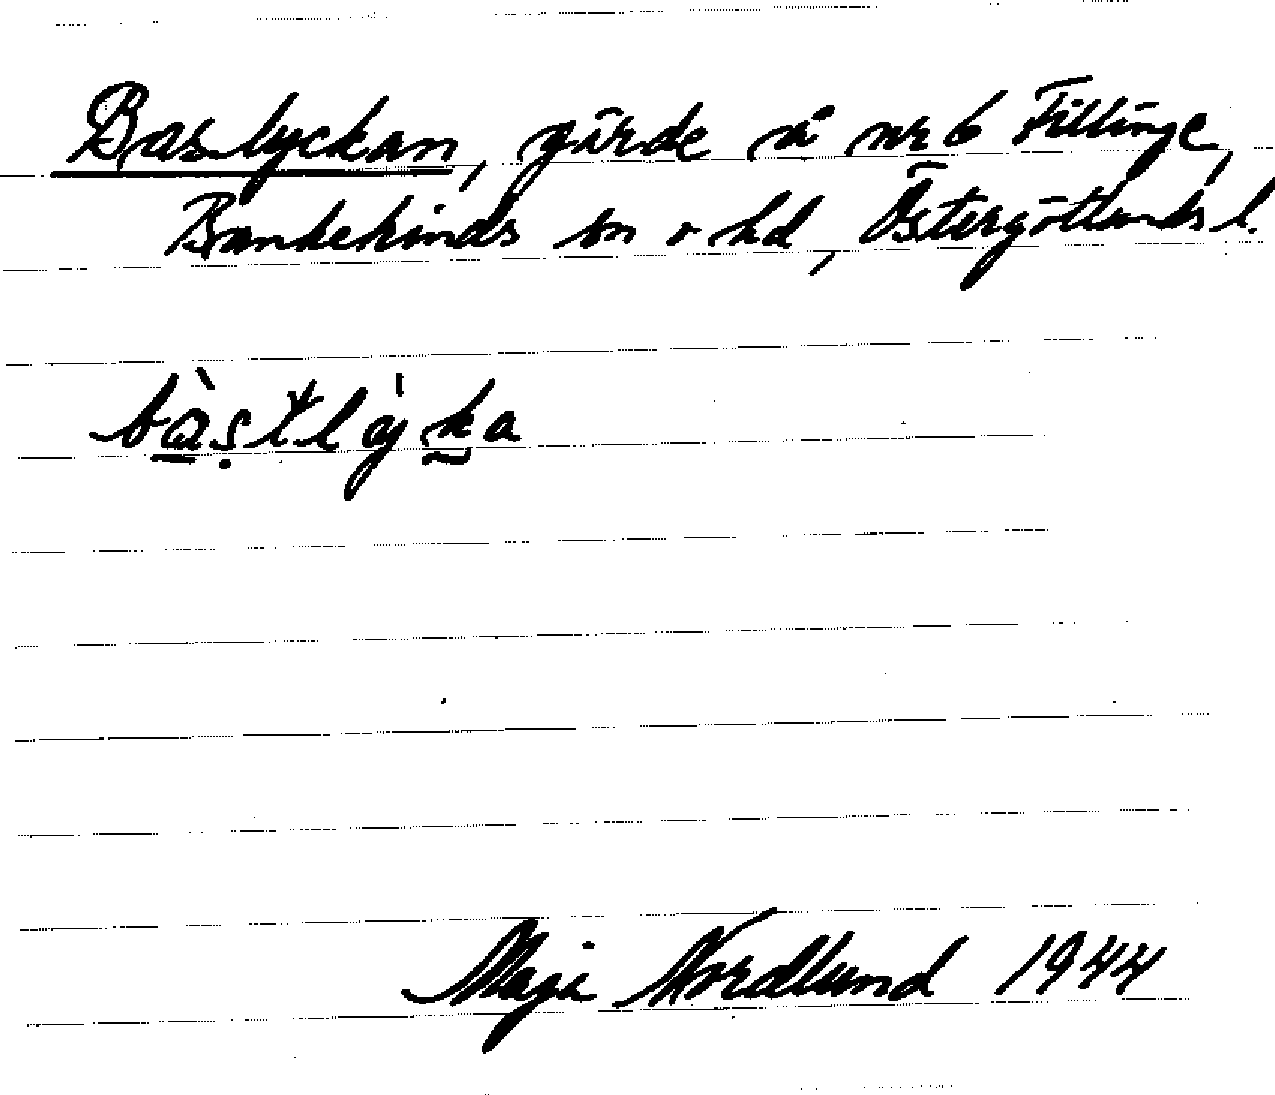 Baslyckan, gärde å nr 6 Fillinge,
Bankekinds sn o hd, Östergötlands l.
Maja Nordlund 1944